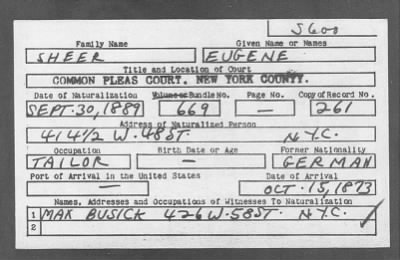 S600
Family Name Given Name or Names
SHEER EUGENE
Title and Location of Court
COMMON PLEAS COURT, NEW YORK COUNTY.
Date of Naturalization Volume or Bundle No. Page No. Copy of Record No.
SEPT. 30, 1889 669 — 261
Address of Naturalized Person
414 1/2 W. 48 ST. N.Y.C.
Occupation Birth Date or Age Former Nationality
TAILOR — GERMAN
Port of Arrival in the United States Date of Arrival
— OCT. 15, 1873
Names, Addresses and Occupations of Witnesses To Naturalization
1 MAX BUSICK 426 W. 58 ST. N.Y.C.
2